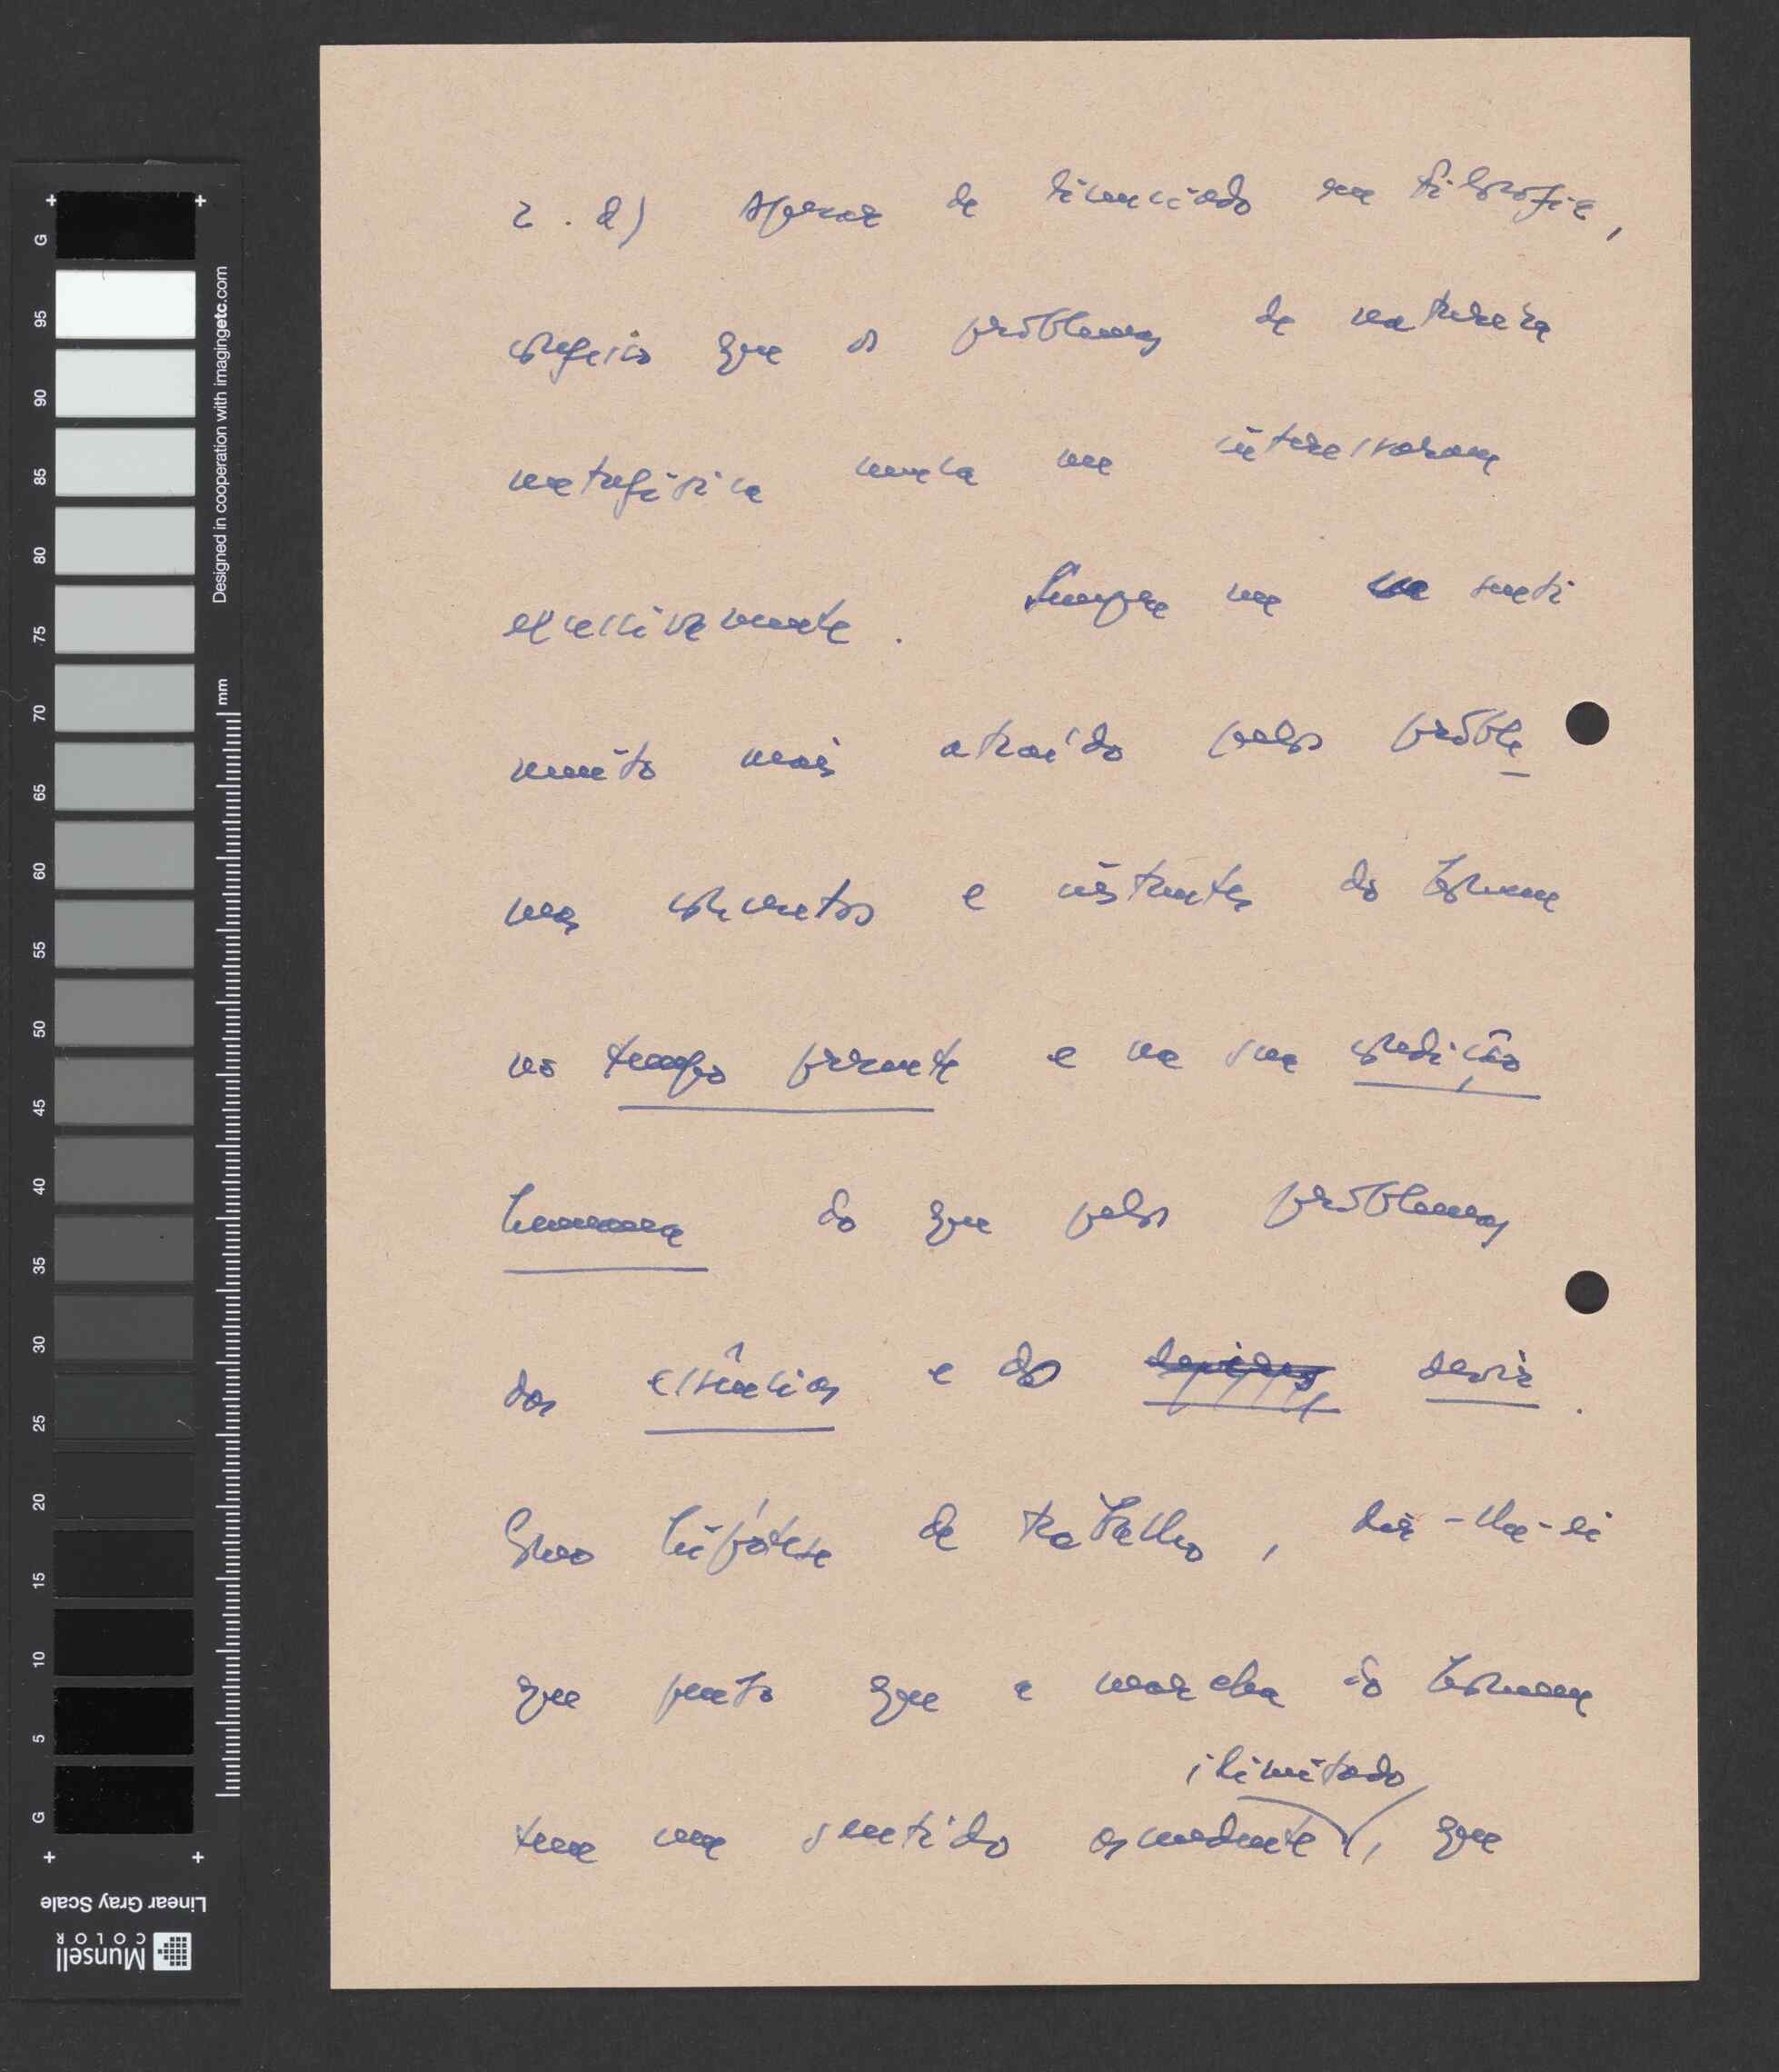 2. a) Apesar de licenciado em filosofia,
confesso que os problemas de natureza
metafísica nunca me interessaram
excessivamente. Sempre me senti
muito mais atraído pelos proble
mas concretos e instantes do homem
no tempo presente e na sua condição
humana do que pelos problemas
das essências e do devir.
Como hipótese de trabalho, dir-lhe-ei
que penso que a marcha do homem
ilimitado
tem um sentido ascendente, que
G 95 90 85 80 75 70 65 60 55 50 45 40 35 30 25 20 15 10 5 G
Designed in cooperation with imagingetc.com
mm
Linear Gray Scale
Munsell
COLOR